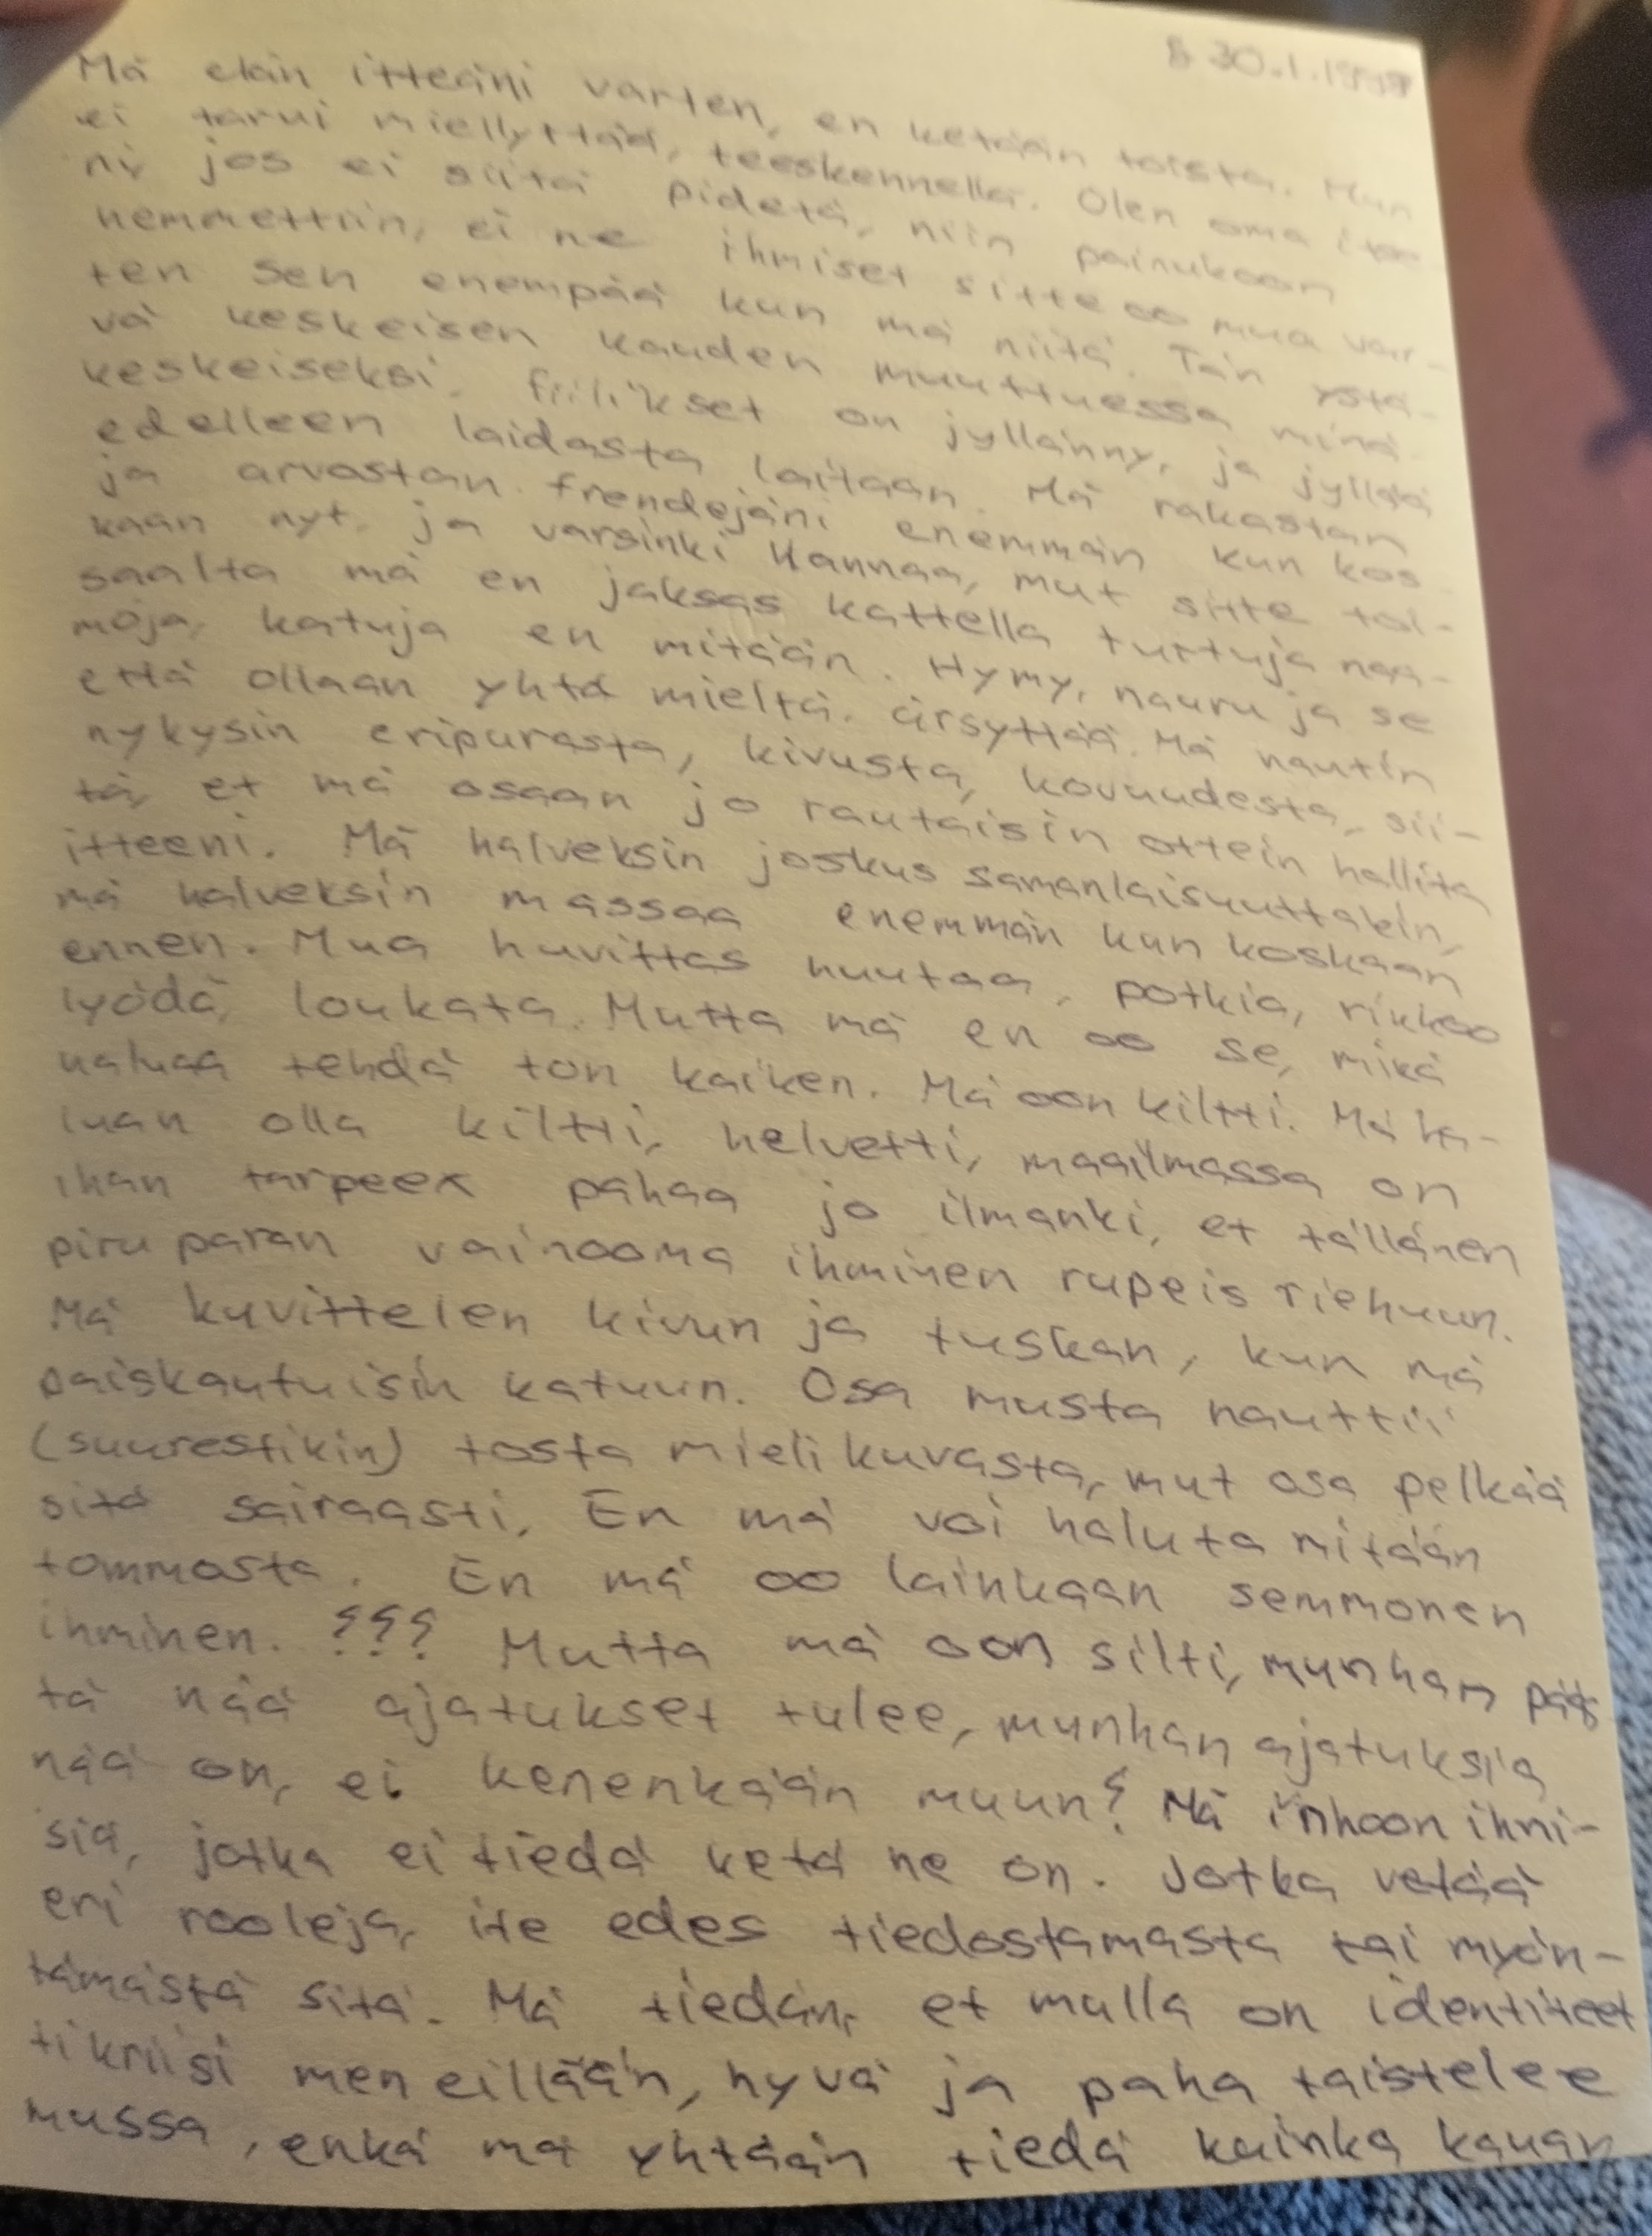 30.1.
Mä elän itteäni varten, en ketään toista. Mun
ei tarvi miellyttää, teeskennellä. Olen oma itse
ni, jos ei siitä pidetä, niin painukoon
hemmettiin, ei ne ihmiset sitte oo mua var-
ten sen enempää kun mä niitä. Tän ystä-
vä keskeisen kauden muuttuessa minä
keskeiseksi. fiilikset on jyllänny, ja jyllää
edelleen laidasta laitaan. Mä rakastan
ja arvostan frendejäni enemmän kun kos
kaan nyt, ja varsinki Hannaa, mut sitte toi-
saalta mä en jaksas kattella tuttuja naa-
moja, katuja en mitään. Hymy, nauru ja se
että ollaan yhtä mieltä. ärsyttää. Mä nautin
nykysin eripurasta, kivusta, kovuudesta, sii-
tä, et mä osaan jo rautaisin ottein hallita
itteeni. Mä halveksin joskus samanlaisuuttakin,
mä halveksin massaa enemmän kun koskaan
ennen. Mua huvittas huutaa, potkia, rikkoo
lyödä, loukata. Mutta mä en oo se, mikä
haluaa tehdä ton kaiken. Mä oon kiltti. Mä ha-
luan olla kiltti, helvetti, maailmassa on
ihan tarpeex pahaa jo ilmanki, et tällänen
piru paran vainooma ihminen rupeis riehuun.
Mä kuvittelen kivun ja tuskan, kun mä
paiskautuisin katuun. Osa musta nauttii
(suurestikin) tosta mielikuvasta, mut osa pelkää
sitä sairaasti. En mä voi haluta mitään
tommosta. En mä oo lainkaan semmonen
ihminen. ??? Mutta mä oon silti, munhan pääs
tä nää ajatukset tulee, munhan ajatuksia
nää on, ei kenenkään muun? Mä inhoon ihmi-
siä, jotka ei tiedä ketä ne on. Jotka vetää
eri rooleja, ite edes tiedostamasta tai myön-
tämästä sitä. Mä tiedän, et mulla on identiteet
tikriisi meneillään, hyvä ja paha taistelee
mussa, enkä mä yhtään tiedä kuinka kauan